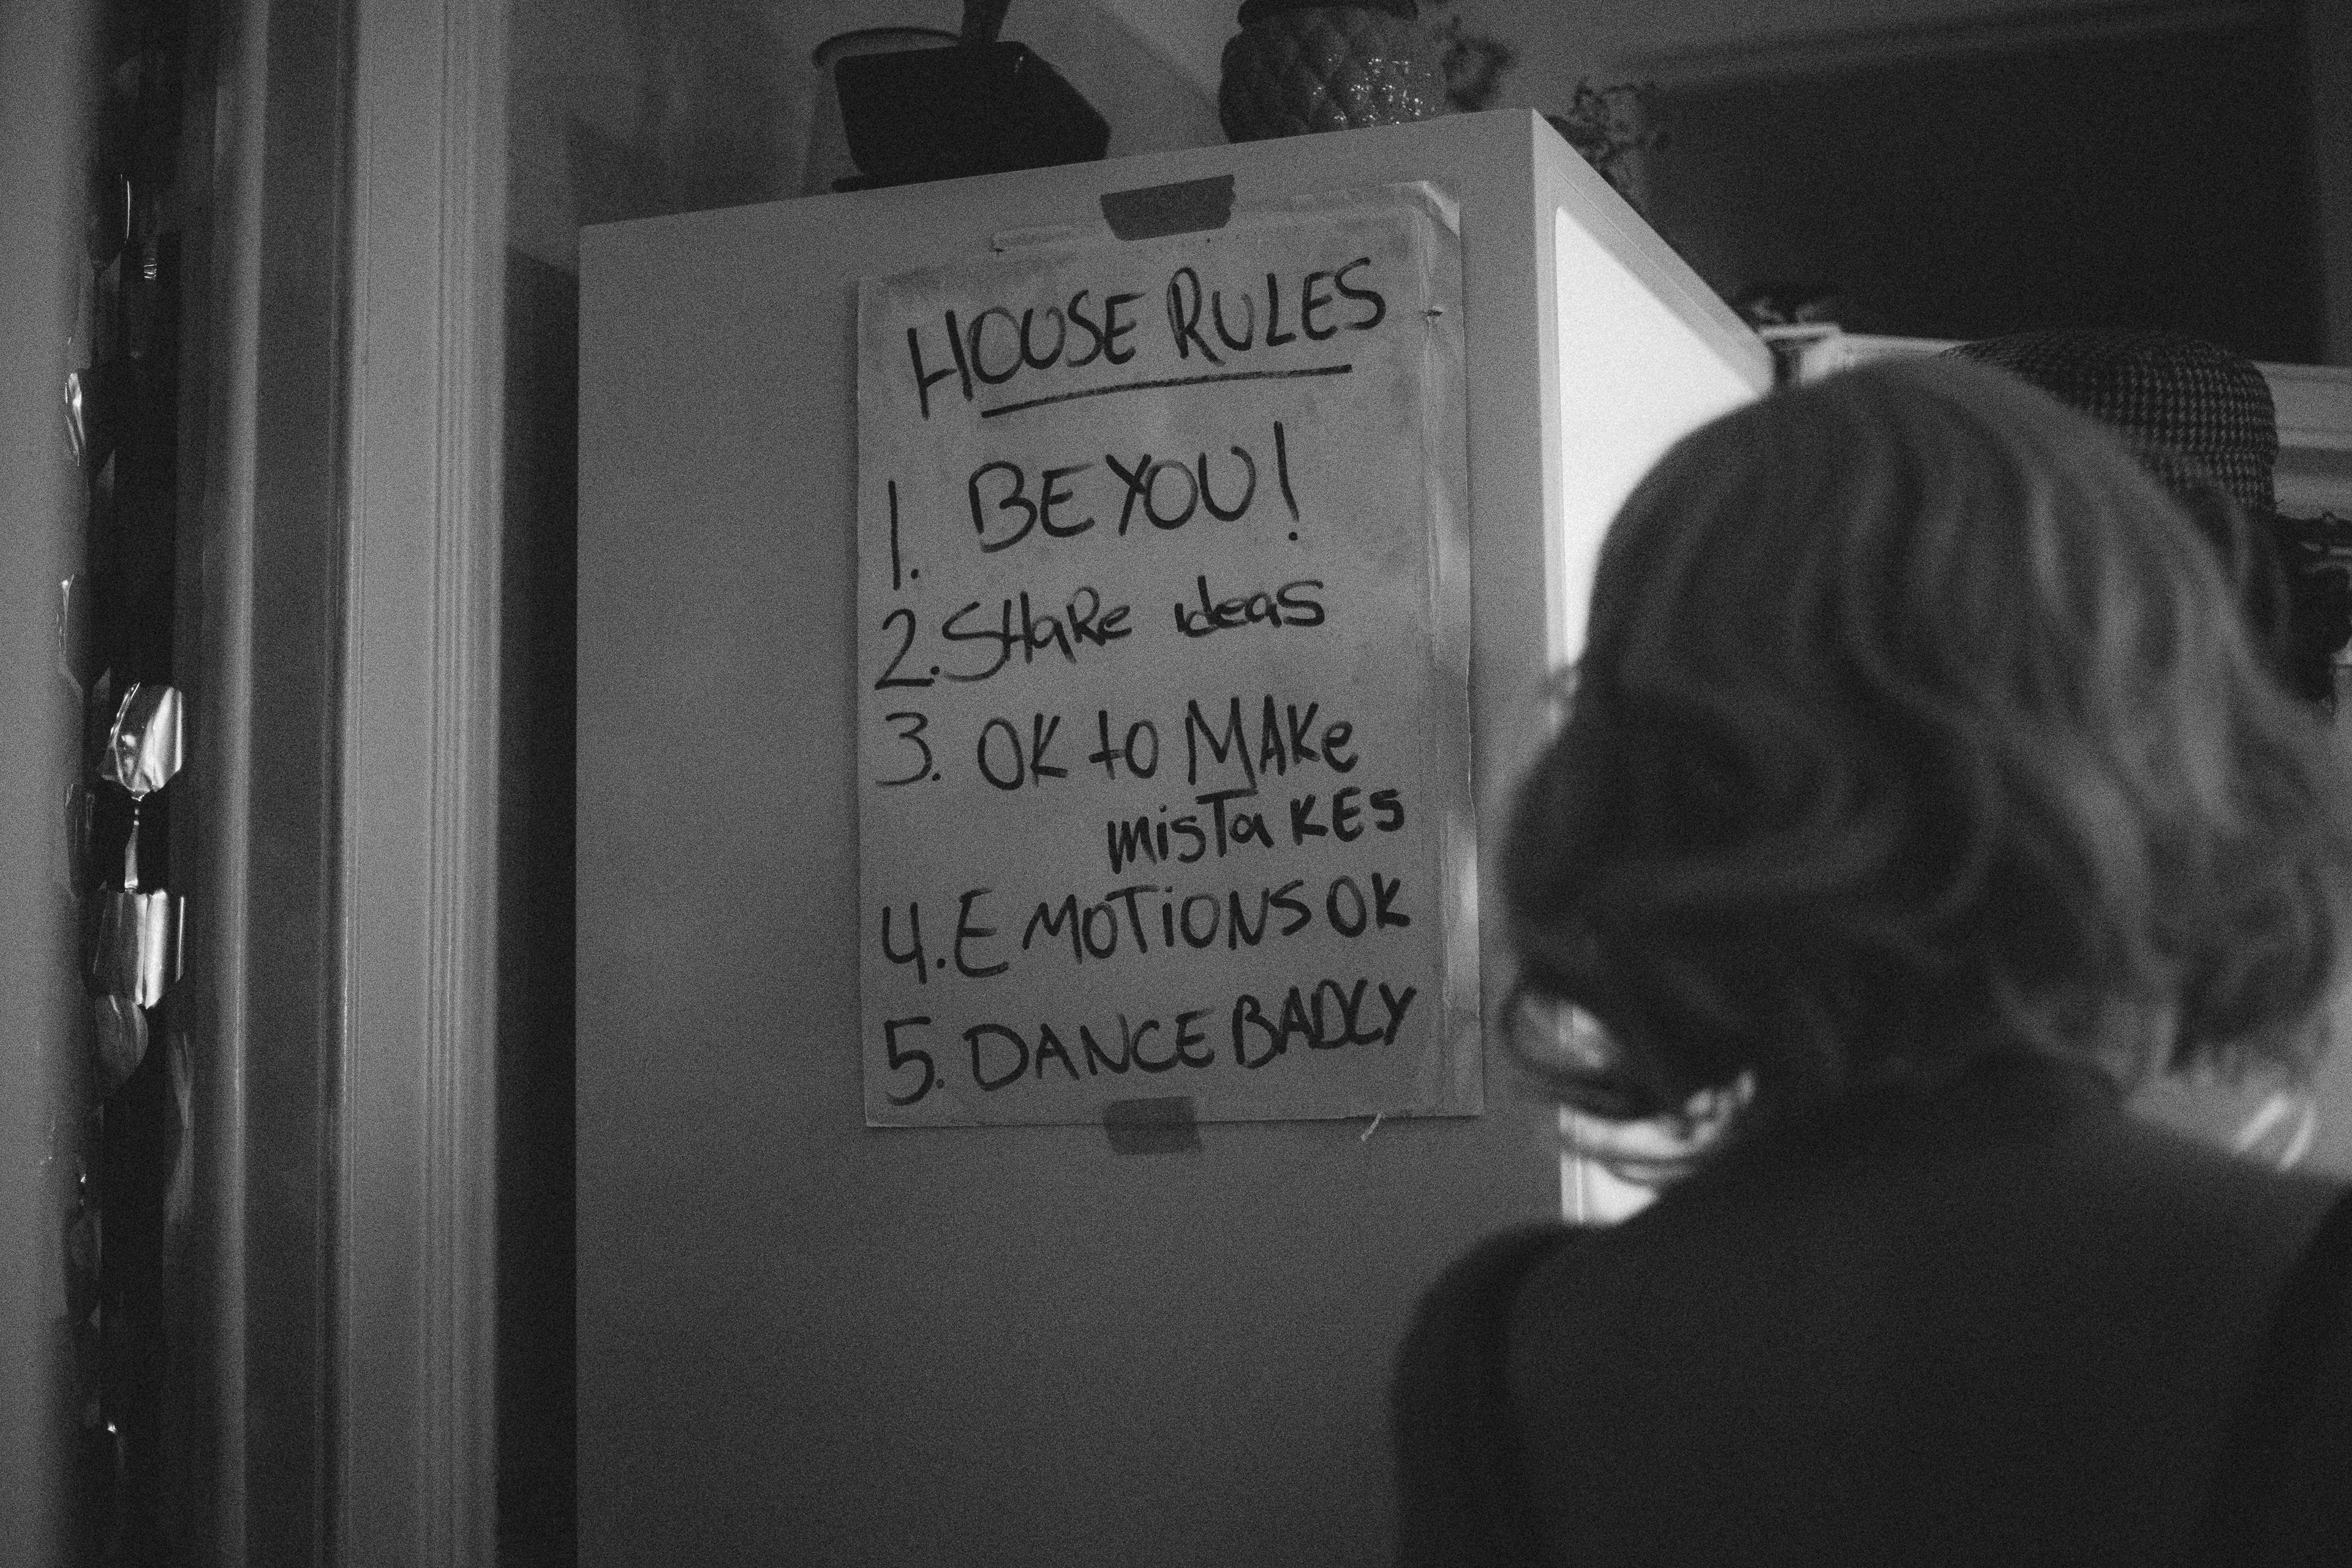 HOUSE RULES
1. BE YOU!
2. SHaRe ideas
3. OK to MAKe
misTaKES
4. EMOTiONS OK
5. DANCE BADLY